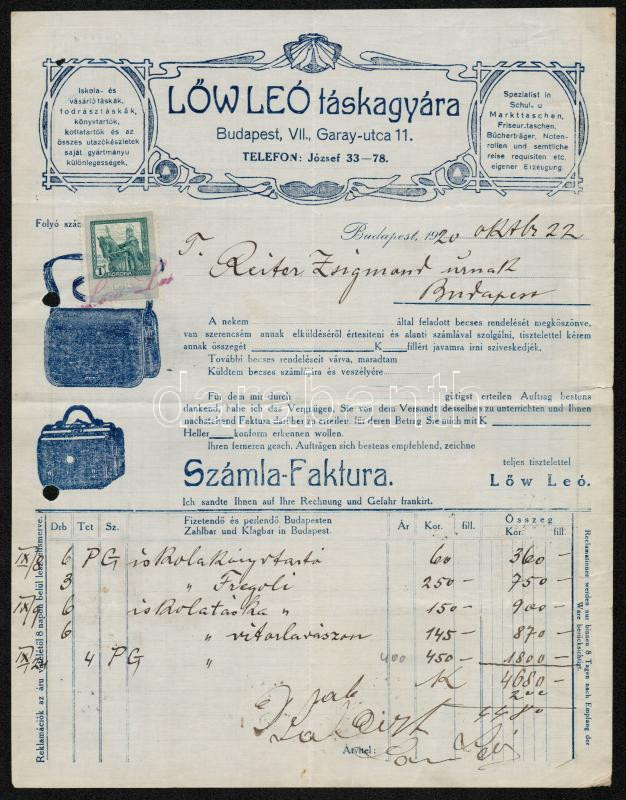 LŐW LEÓ táskagyára
Budapest, VII., Garay-utca 11.
TELEFON: József 33-78.
Iskola- és
vásárló táskák,
fodrásztáskák,
könyvtartók,
kottatartók és az
összes utazókészletek
saját gyártmányu
különlegességek.
Spezialist in
Schul- u
Markttaschen,
Friseur-taschen,
Bücherträger, Noten-
rollen und semtliche
reise requisiten etc.
eigener Erzeugung.
Folyó szám
1 KORONA
Budapest, 1920 oktbr 22
T. Reiter Zsigmond urnak
Budapest
A nekem által feladott becses rendelését megköszönve,
van szerencsém annak elküldéséről értesiteni és alanti számlával szolgálni, tisztelettel kérem
annak összegét K fillért javamra irni sziveskedjék.
További becses rendeléseit várva, maradtam
Küldtem becses számlájára és veszélyére
Für dem mir durch gütigst erteilen Auftrag bestens
dankend, habe ich das Vergnügen Sie von dem Versandt desselben zu unterrichten und Ihnen
nachstehend Faktura darüber zu erteilen, für deren Betrag Sie mich mit K
Heller konform erkennen wollen.
Ihren ferneren gesch. Aufträgen sich bestens empfehlend, zeichne
Számla-Faktura.
teljes tisztelettel
Lőw Leó.
Ich sandte Ihnen auf Ihre Rechnung und Gefahr frankirt.
Drb Tet Sz. Fizetendő és perlendő Budapesten Ár Kor. fill. Összeg
Zahlbar und Klagbar in Budapest. Kor. fill.
IX/8 6 PG iskolakönyvtartó 60 360 —
3 " Fregoli 250 — 750 —
6 iskolatáska " 150 — 900 —
6 " vitorlavászon 145 — 870 —
4 PG " 400 450 — 1800 —
K 4680 —
200
4480
Átvitel:
Löw Leó
Reklamációk az áru vételétől 8 napon belül lesz elismerve.
Reclamationen werden nur binnen 8 Tagen nach Empfang der
Ware berücksichtigt.
darabanth